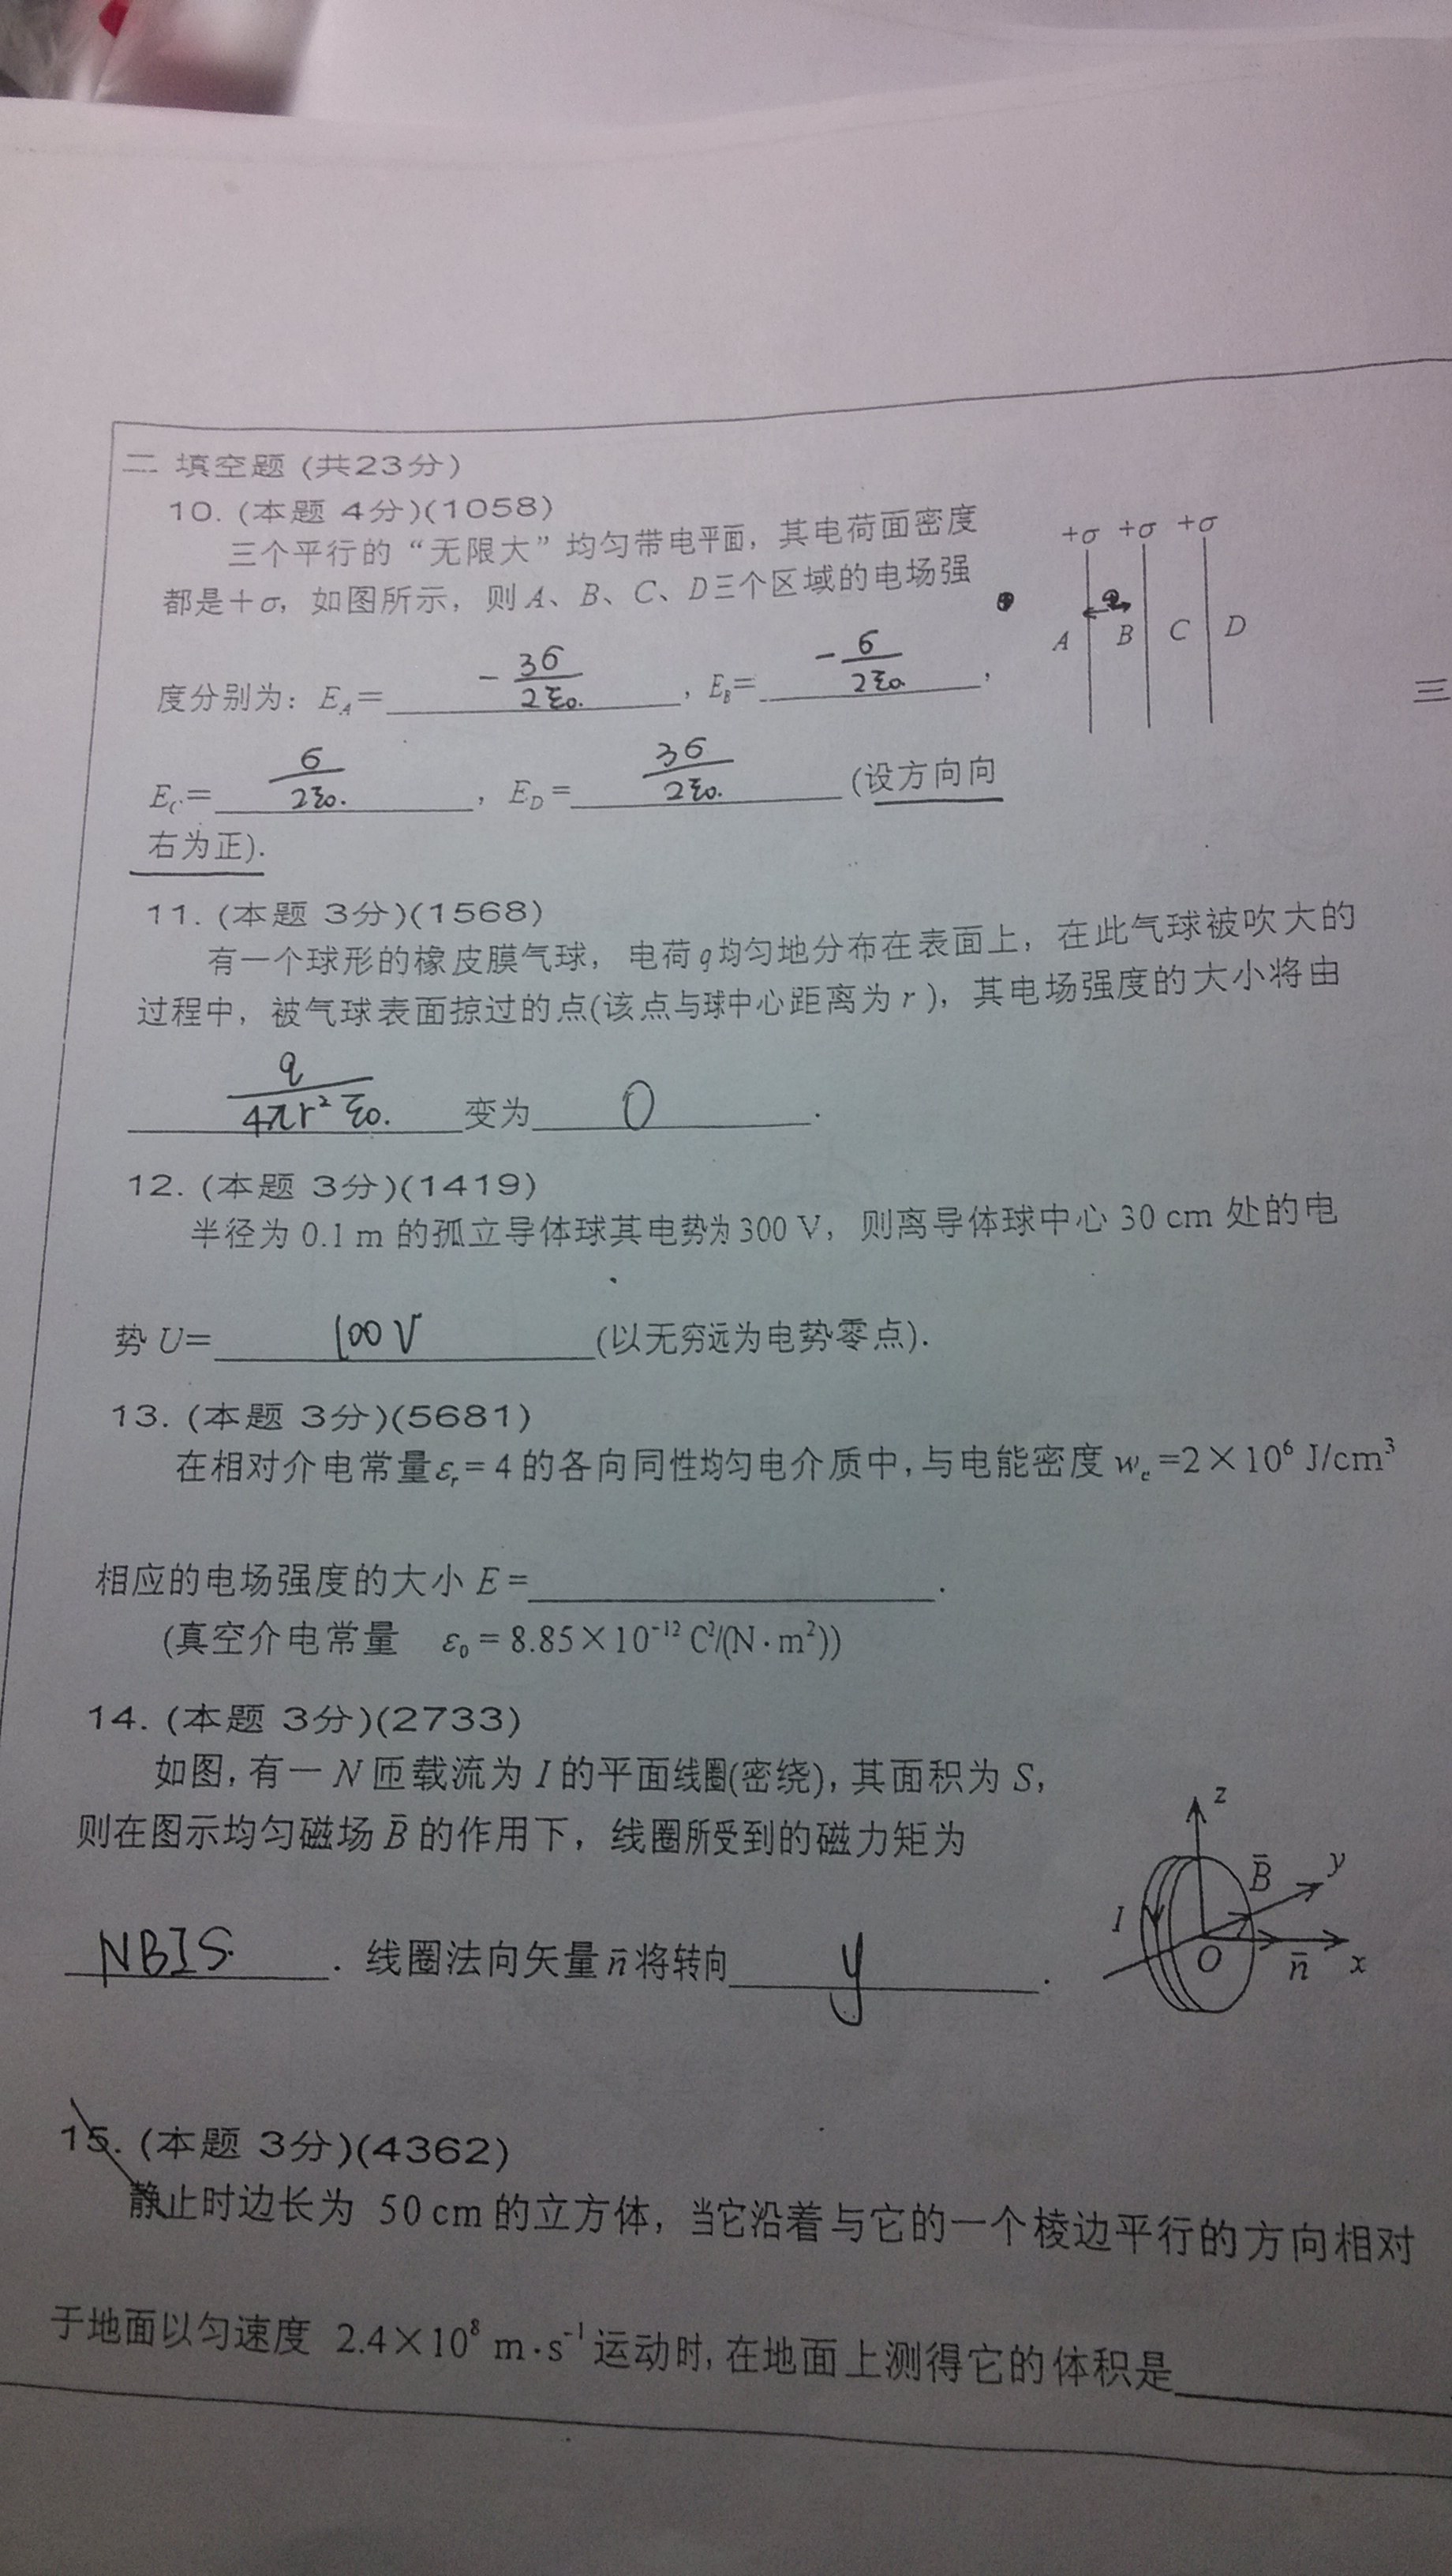 二 填空题 (共23分)
10. (本题 4分)(1058)
三个平行的“无限大”均匀带电平面，其电荷面密度
都是＋σ，如图所示，则 A、B、C、D三个区域的电场强
度分别为：E_A＝ -3σ/2ε0. ，E_B＝ -σ/2ε0 ，
E_C＝ σ/2ε0. ，E_D＝ 3σ/2ε0. (设方向向
右为正).
+σ +σ +σ
A B C D
三
11. (本题 3分)(1568)
有一个球形的橡皮膜气球，电荷 q 均匀地分布在表面上，在此气球被吹大的
过程中，被气球表面掠过的点(该点与球中心距离为 r )，其电场强度的大小将由
q/4πr²ε0. 变为 0 .
12. (本题 3分)(1419)
半径为 0.1 m 的孤立导体球其电势为 300 V，则离导体球中心 30 cm 处的电
势 U＝ 100V (以无穷远为电势零点).
13. (本题 3分)(5681)
在相对介电常量 ε_r = 4 的各向同性均匀电介质中，与电能密度 w_e =2×10⁶ J/cm³
相应的电场强度的大小 E = .
(真空介电常量 ε₀ = 8.85×10⁻¹² C²/(N·m²))
14. (本题 3分)(2733)
如图，有一 N 匝载流为 I 的平面线圈(密绕)，其面积为 S，
则在图示均匀磁场 B̄ 的作用下，线圈所受到的磁力矩为
NBIS. . 线圈法向矢量 n̄ 将转向 y .
z
B̄ y
I
O n̄ x
15. (本题 3分)(4362)
静止时边长为 50 cm 的立方体，当它沿着与它的一个棱边平行的方向相对
于地面以匀速度 2.4×10⁸ m·s⁻¹ 运动时，在地面上测得它的体积是